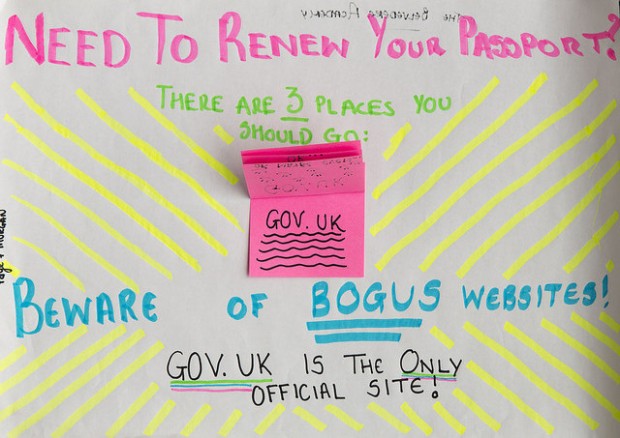 The Belvedere Academy
NEED TO RENEW YOUR PASSPORT?
THERE ARE 3 PLACES YOU
SHOULD GO:
GOV.UK
BEWARE OF BOGUS WEBSITES!
GOV.UK IS THE ONLY
OFFICIAL SITE!
+ MORGAN